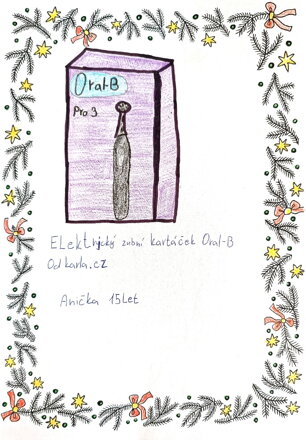 Oral-B
Pro 3
Elektrický zubní kartáček Oral-B
Od karla.cz
Anička 15let